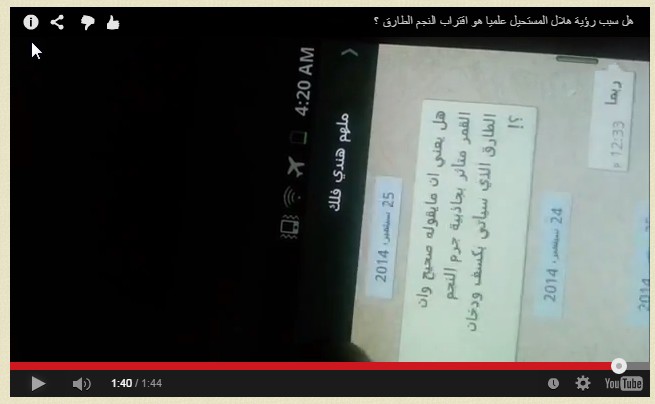 هل سبب رؤية هلال المستحيل علميا هو اقتراب النجم الطارق ؟
4:20 AM
ملهم هندي فلك
25 سبتمبر، 2014
هل يعني ان مايقوله صحيح وان
القمر متاثر بجاذبية جرم النجم
الطارق الذي سياتي بكسف ودخان
؟!
24 سبتمبر، 2014
ربما
12:33 p
2014
1:40 / 1:44
YouTube